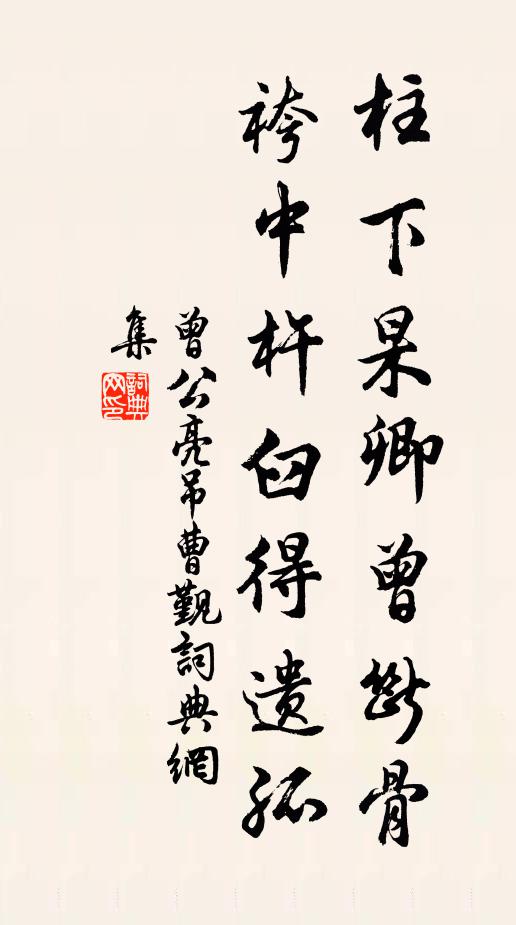 柱下杲卿曾断骨
袴中杵臼得遗孤
曾公亮吊曹觐词典網
集
詞典
网印